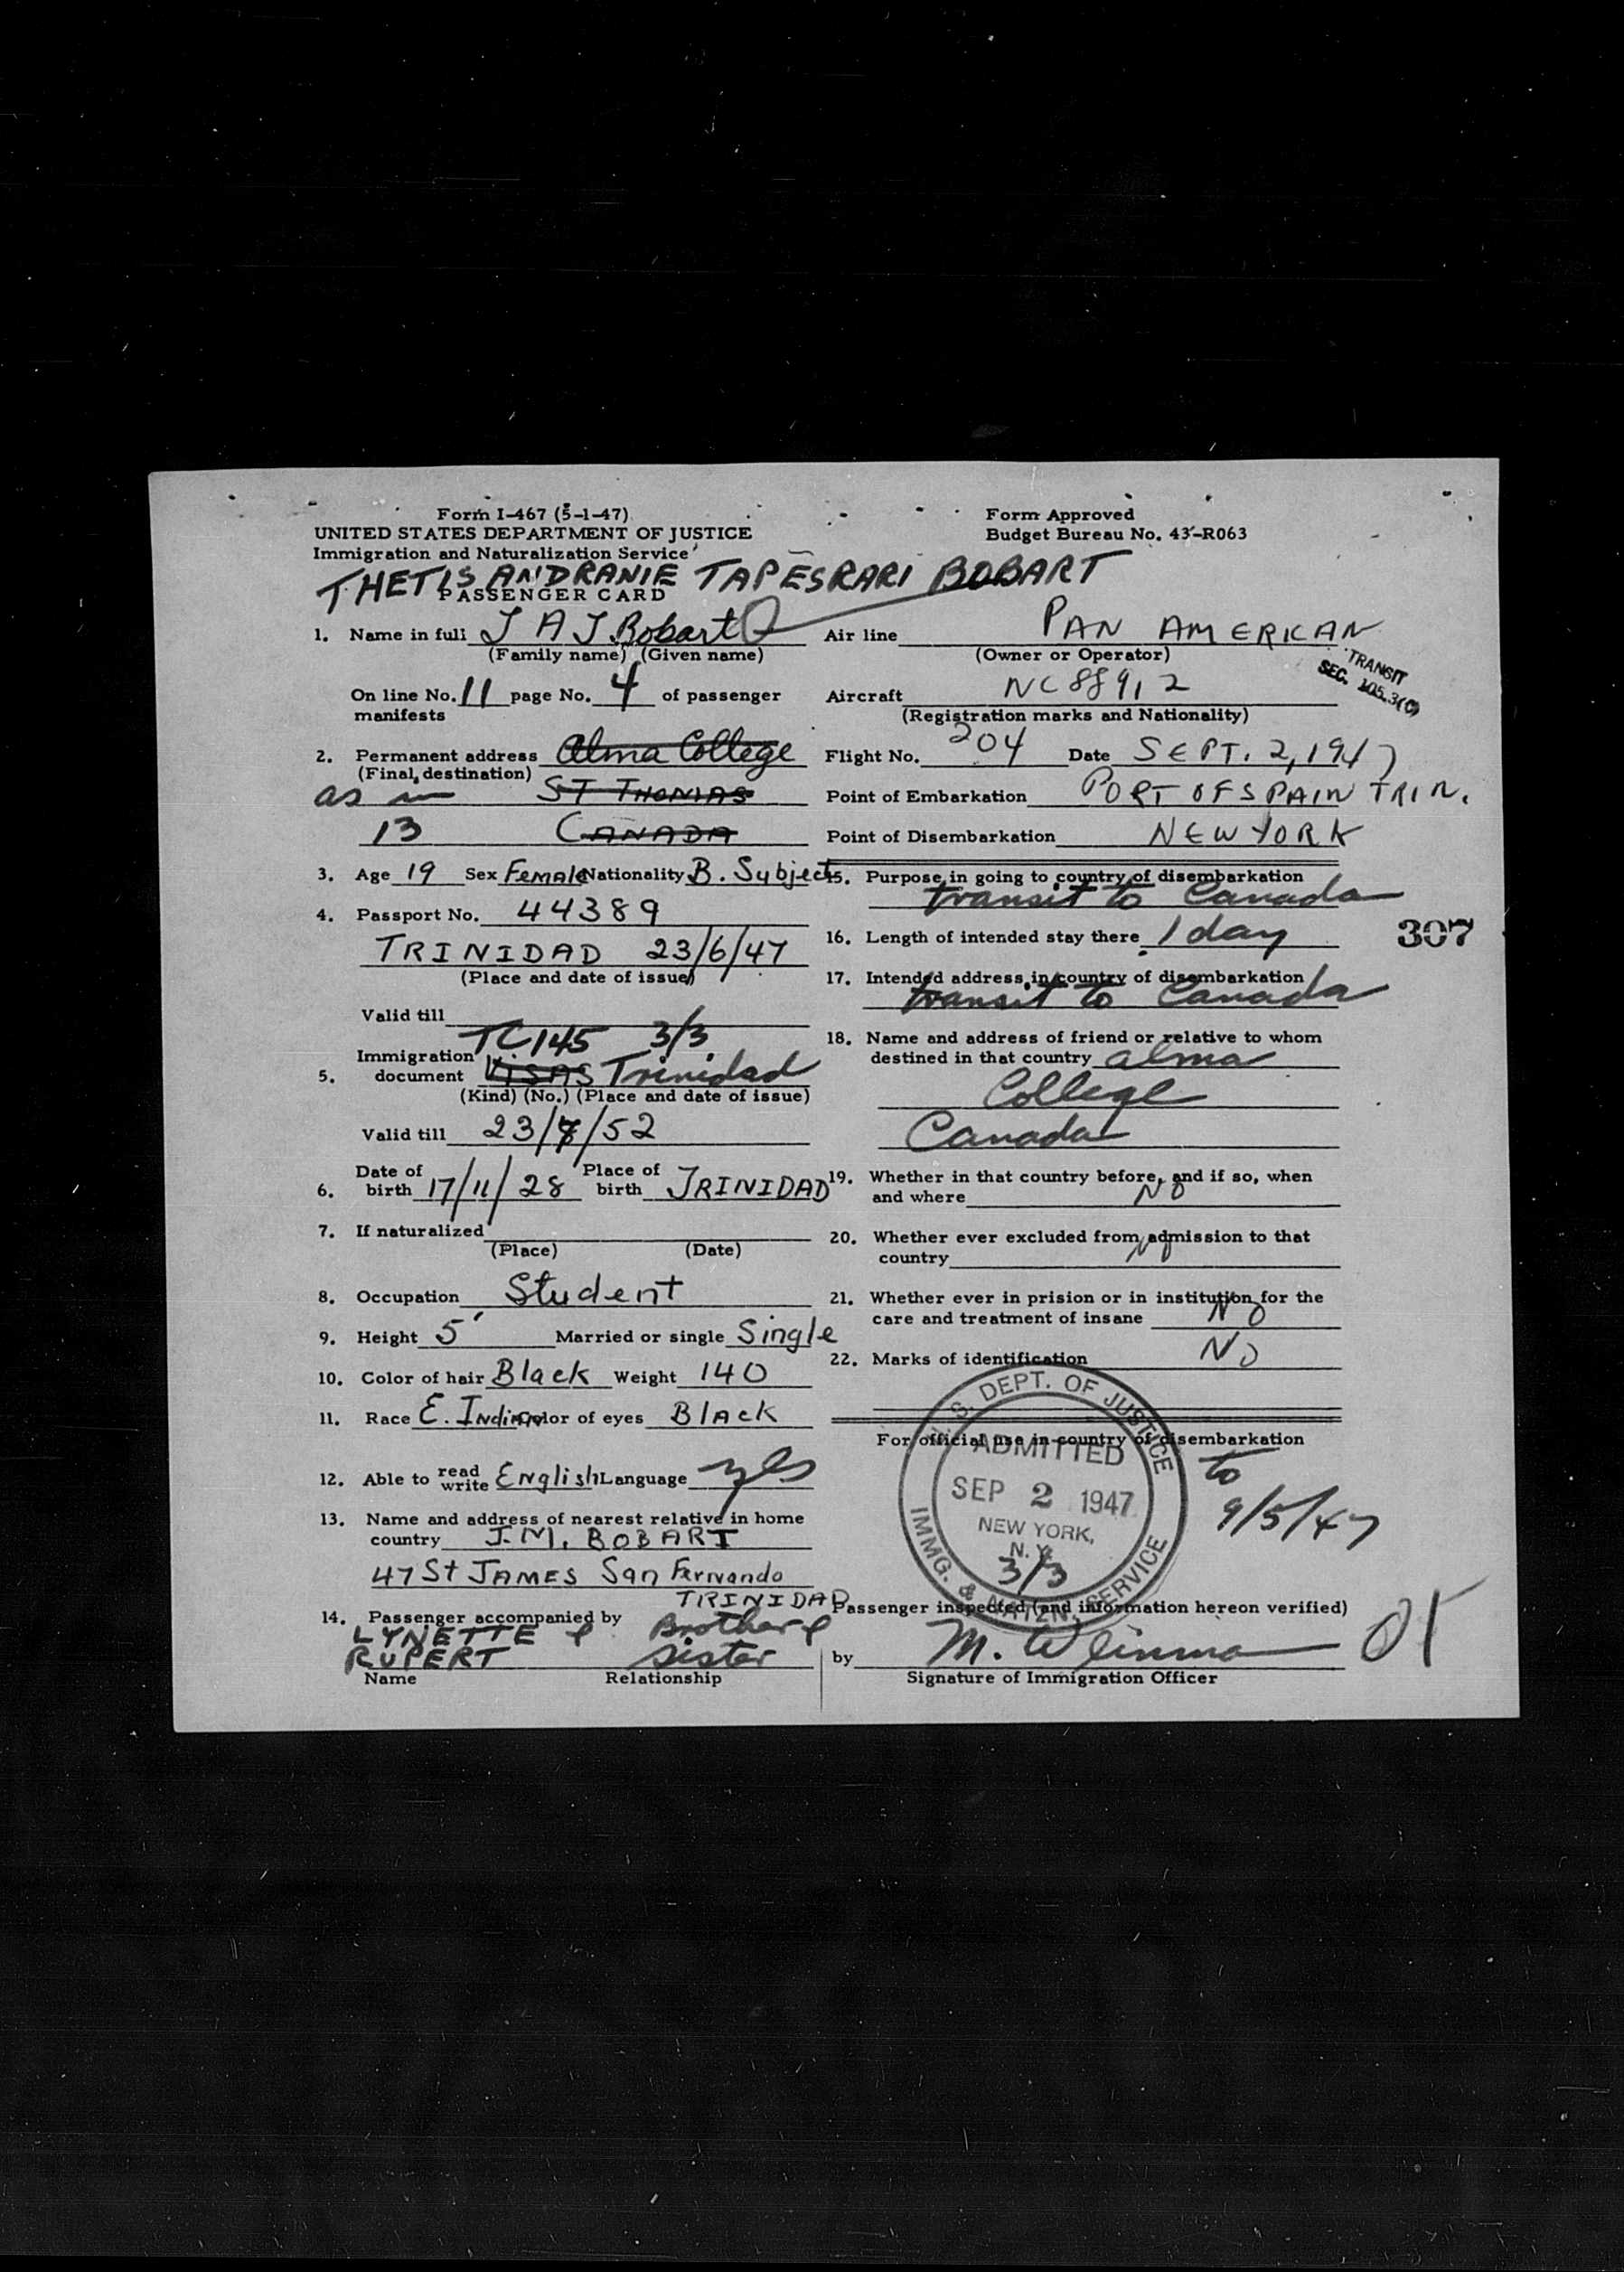 Form I-467 (5-1-47)
UNITED STATES DEPARTMENT OF JUSTICE
Immigration and Naturalization Service
Form Approved
Budget Bureau No. 43-R063
THETIS ANDRANIE TAPESRARI BOBART
PASSENGER CARD
1. Name in full T A T Bobart
(Family name) (Given name)
On line No. 11 page No. 4 of passenger
manifests
2. Permanent address Alma College
(Final destination)
as in ST THOMAS
13 CANADA
3. Age 19 Sex Female Nationality B. Subject
4. Passport No. 44389
TRINIDAD 23/6/47
(Place and date of issue)
Valid till
TC 145 3/3
Immigration
5. document VISAS Trinidad
(Kind) (No.) (Place and date of issue)
Valid till 23/7/52
6. Date of birth 17/11/28 Place of birth TRINIDAD
7. If naturalized
(Place) (Date)
8. Occupation Student
9. Height 5' Married or single Single
10. Color of hair Black Weight 140
11. Race E. Indian Color of eyes BlAck
12. Able to read write English Language yes
13. Name and address of nearest relative in home
country J. M. BOBART
47 St JAMES San Fernando
TRINIDAD
14. Passenger accompanied by
LYNETTE & Brother &
RUPERT Sister
Name Relationship
Air line PAN AMERICAN
(Owner or Operator)
TRANSIT
SEC. 105.3(C)
Aircraft NC88912
(Registration marks and Nationality)
Flight No. 204 Date SEPT. 2, 1947
Point of Embarkation PORT OF SPAIN TRIN.
Point of Disembarkation NEW YORK
15. Purpose in going to country of disembarkation
transit to Canada
16. Length of intended stay there 1 day
307
17. Intended address in country of disembarkation
transit to Canada
18. Name and address of friend or relative to whom
destined in that country Alma
College
Canada
19. Whether in that country before, and if so, when
and where NO
20. Whether ever excluded from admission to that
country NO
21. Whether ever in prision or in institution for the
care and treatment of insane NO
22. Marks of identification NO
For official use in country of disembarkation
U. S. DEPT. OF JUSTICE
ADMITTED
SEP 2 1947
NEW YORK,
N. Y.
3/3
IMMG. & NATZN. SERVICE
to
9/5/47
Passenger inspected (and information hereon verified)
by M.
Signature of Immigration Officer